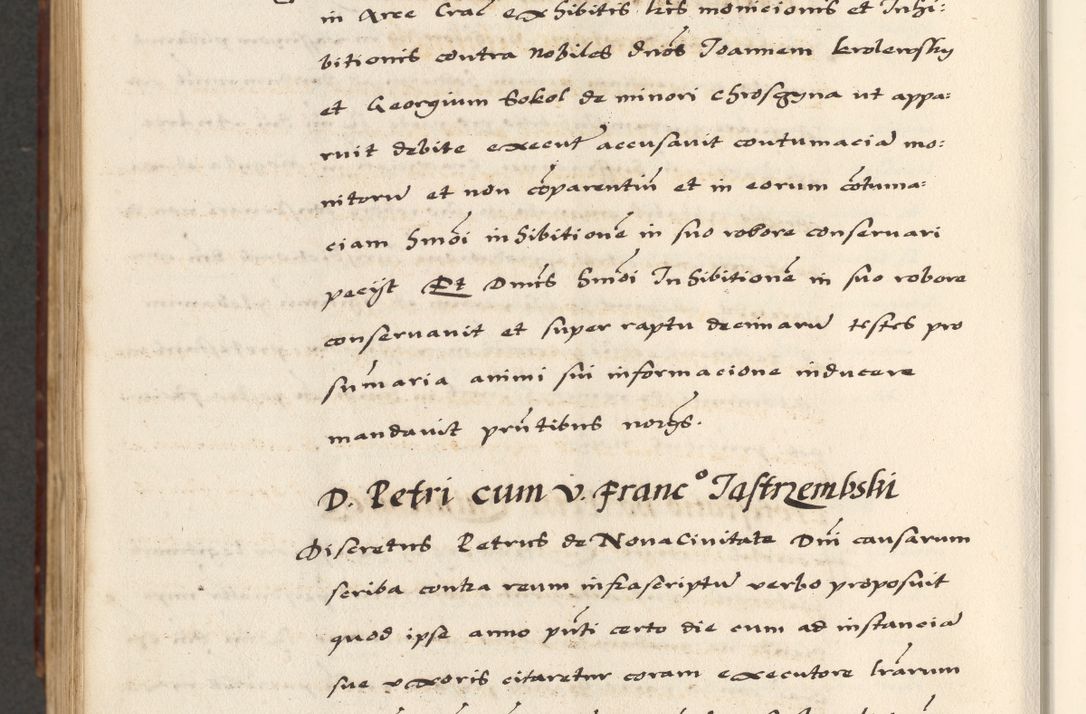 in Arce Crac̃ exhibitis lr̃is monicionis et Inhi-
bitionis contra Nobiles dnõs Ioannem krolewsky
et Georgium Sokol de minori chroszyna ut appa:
ruit debite execut̃ accusavit contumaciã mo:
nitorũ et non cõparentiũ et in eorum cõtuma:
ciam hmõi inhibitionẽ in suo robore conservari
peciit Et Dnus hmõi Inhibitionẽ in suo robore
conservavit et super raptu decimarũ testes pro
sũmaria animi sui informacione inducere
mandavit pñtibus nor̃is.
D. Petri cum V. Francᵒ Jastrzembski
Discretus Petrus de Nova Civitate Dñi causarum
scriba contra reum infrascriptũ verbo proposuit
quod ipse anno pñti certo die cum ad instanciã
sue uxoris citaretur coram executore lr̃arum